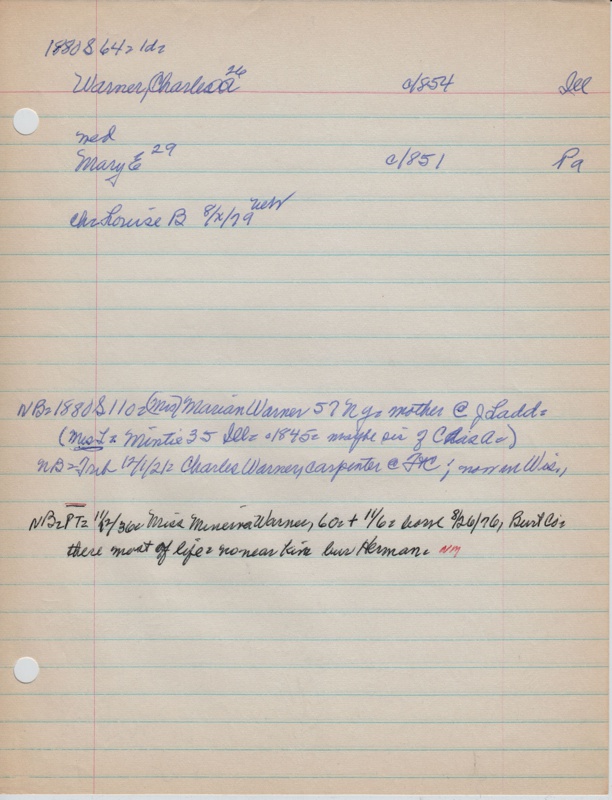 1880 S 64 = 1d =
Warner, Charles A 26 c/854 Ill
med
Mary E 29 c/851 Pa
ch = Louise B 8/x/79 neb
NB = 1880 S 110 = (Mrs) Marian Warner 57 N y = mother @ J Ladd =
(Mrs L = Mintie 35 Ill = c1845 = maybe sis of Chas A =)
NB = Trib 12/1/21 = Charles Warner, carpenter @ ; now in Wis.,
NB = PT = 11/12/36 = Miss Minerva Warner, 60 = + 11/6 = born 8/26/76, Burt Co =
there most of life = no near kin but Herman = NM